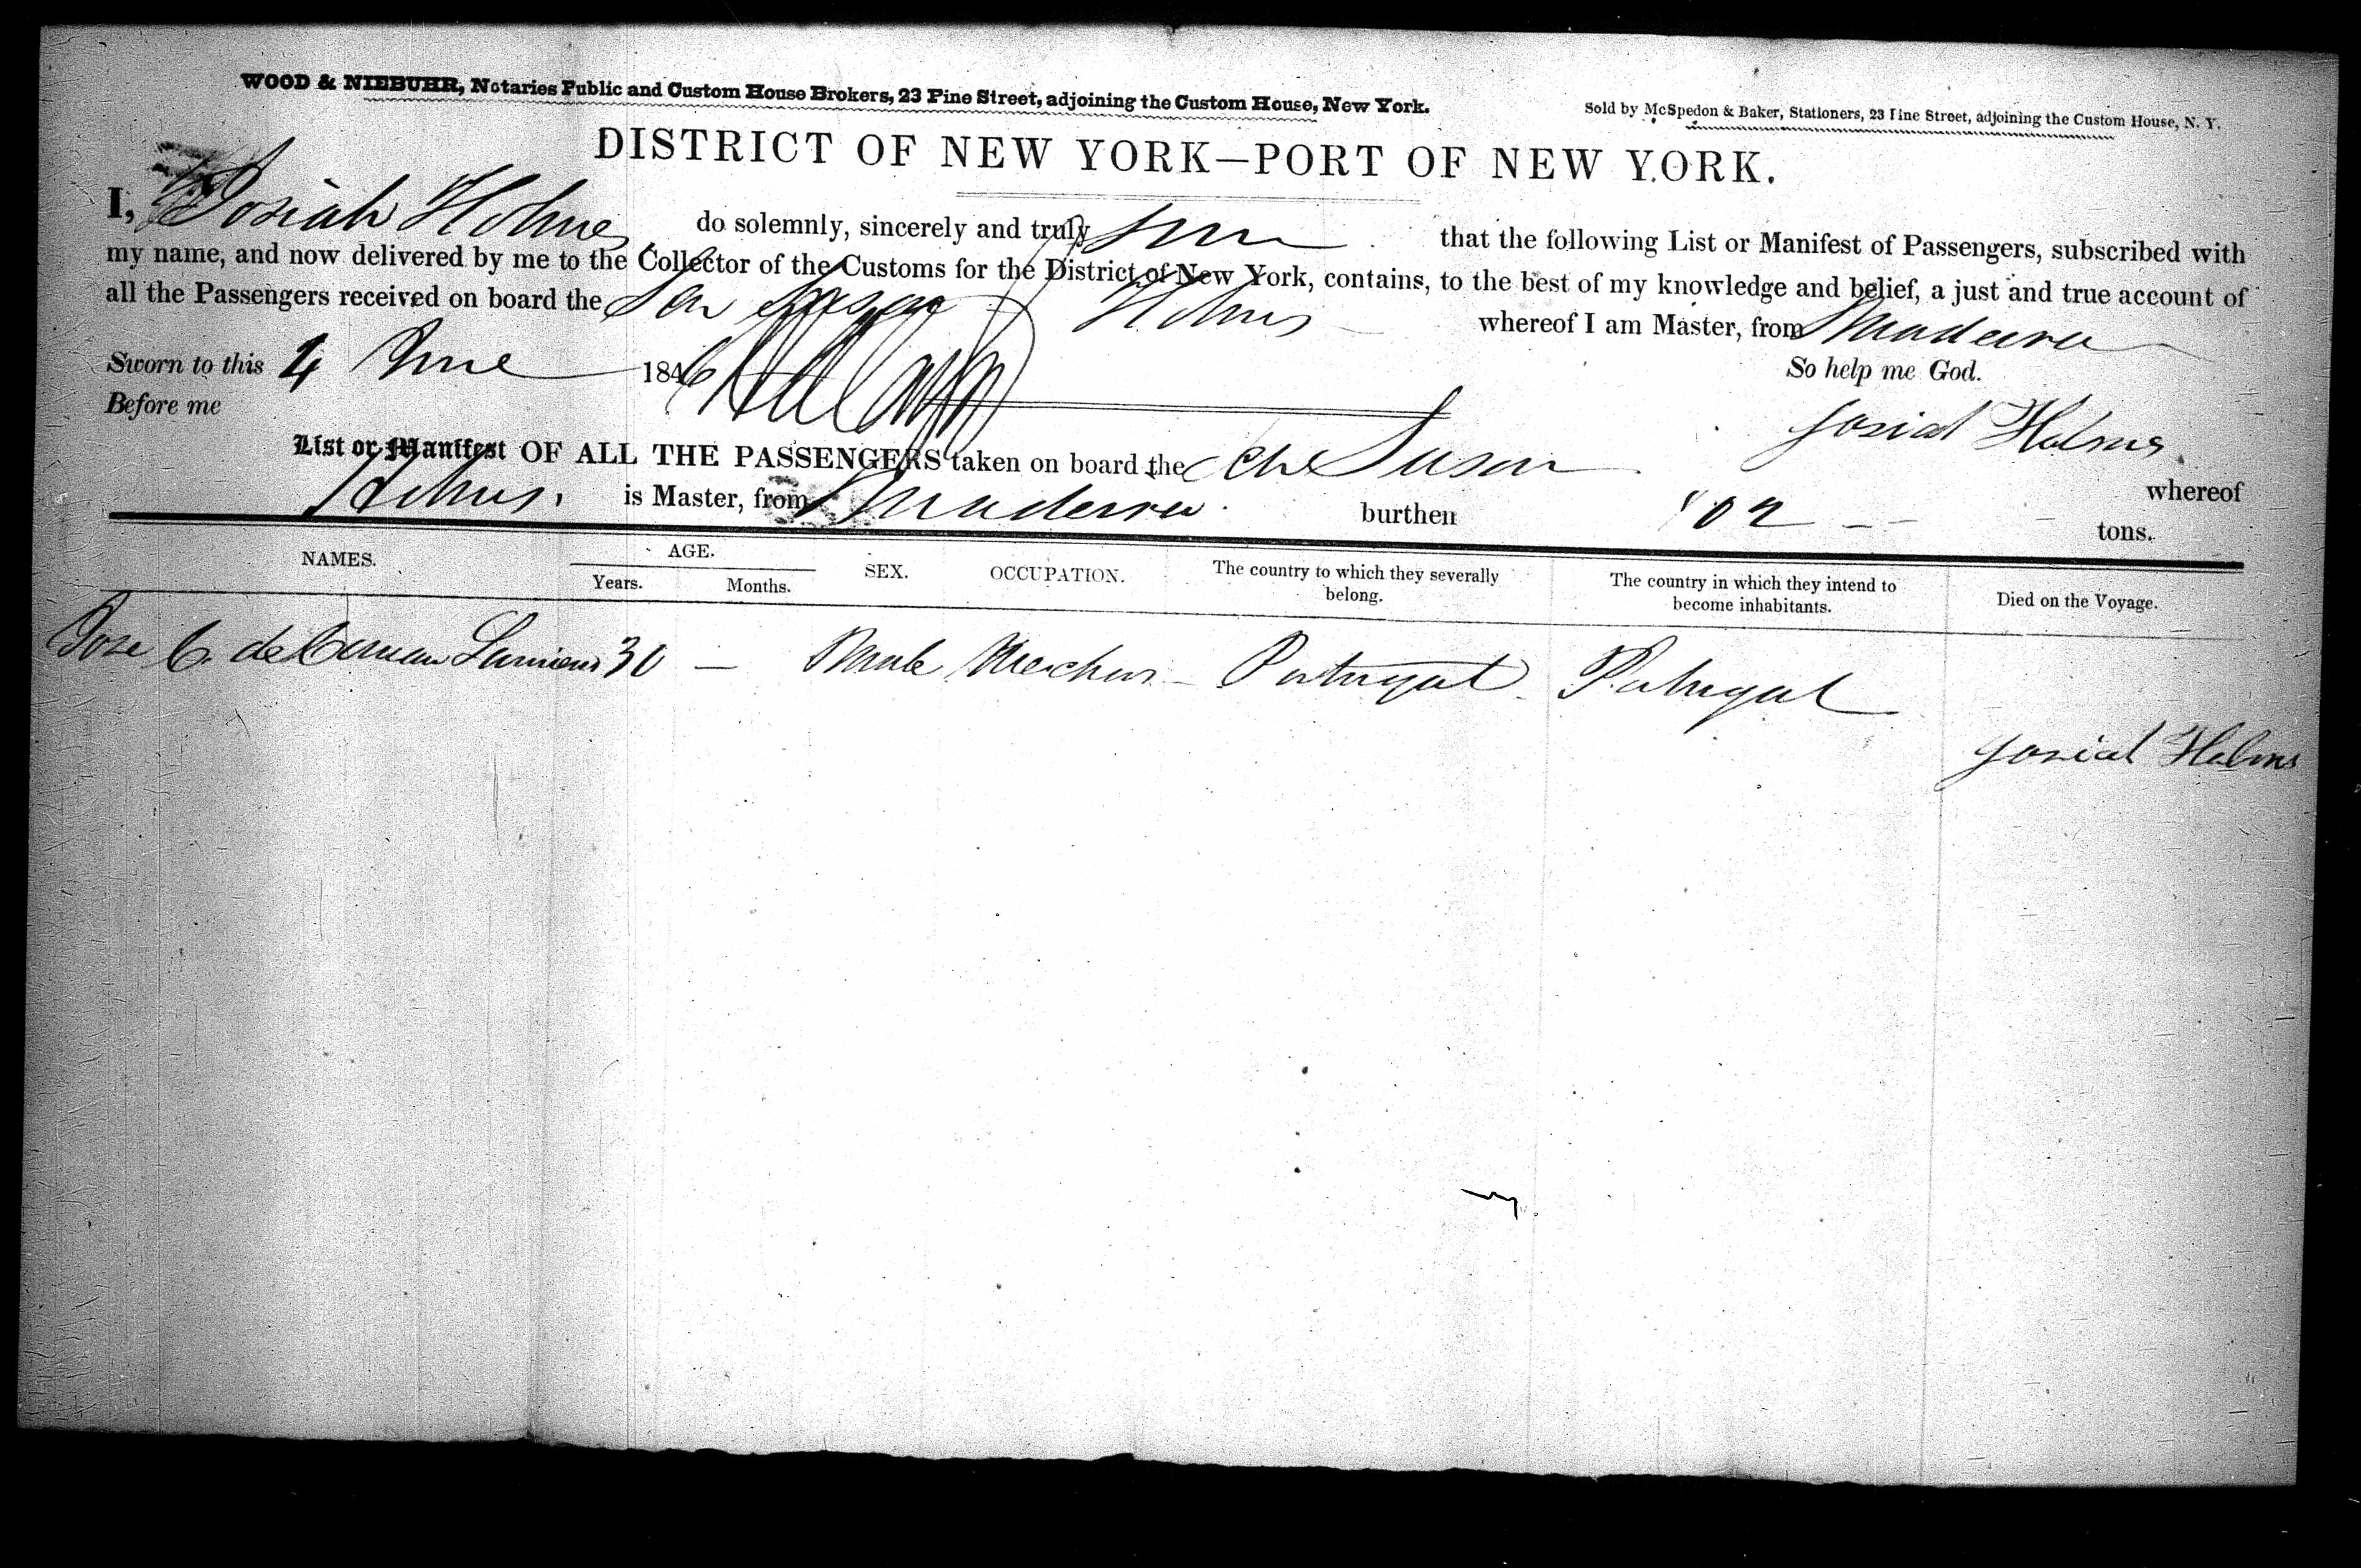 WOOD & NIEBUHR, Notaries Public and Custom House Brokers, 23 Pine Street, adjoining the Custom House, New York.
Sold by McSpedon & Baker, Stationers, 23 Pine Street, adjoining the Custom House, N. Y.
DISTRICT OF NEW YORK—PORT OF NEW YORK.
I, Josiah Holmes do solemnly, sincerely and truly that the following List or Manifest of Passengers, subscribed with
my name, and now delivered by me to the Collector of the Customs for the District of New York, contains, to the best of my knowledge and belief, a just and true account of
all the Passengers received on board the Susan Holmes whereof I am Master, from Madeira
Sworn to this 4 June 1846 So help me God.
Before me Josiah Holmes
List or Manifest OF ALL THE PASSENGERS taken on board the Sch Susan whereof
Holmes. is Master, from Madeira burthen 102 tons.
NAMES. AGE. Years. Months. SEX. OCCUPATION. The country to which they severally belong. The country in which they intend to become inhabitants. Died on the Voyage.
Jose C. de 30 — Male Merchant Portugal Portugal
Josiah Holmes